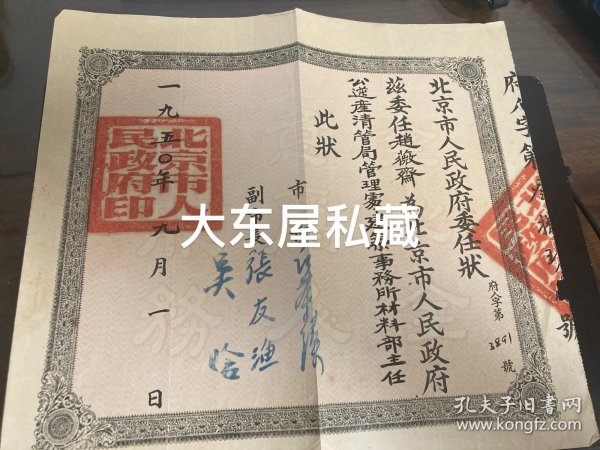 北京市人民政府委任狀
府人字第3891號
茲委任趙徵齋為北京市人民政府
公逆産清管局管理處建築事務所材料部主任
此狀
市
副市長張友漁
吳晗
一九五〇年九月一日
北京市人民政府印
府人字第
號
大东屋私藏
孔夫子旧书网
www.kongfz.com